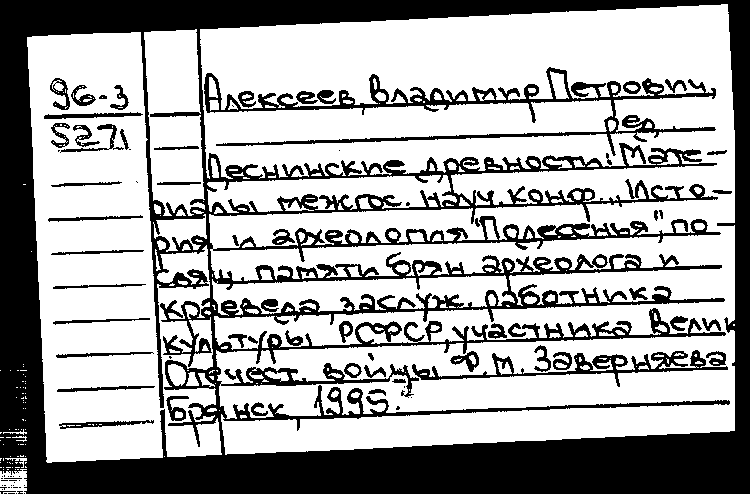 96-3
5271
Алексеев, Владимир Петрович,
ред.
Деснинские древности: Мате-
риалы межгос. науч. конф. "Исто-
рия и археология "Подесенья", по-
свящ. памяти брян археолога и
краеведа, заслуж. работника
культуры РСФСР, участника Велик
Отечест. войны Ф.М. Заверняева.
Брянск, 1995.